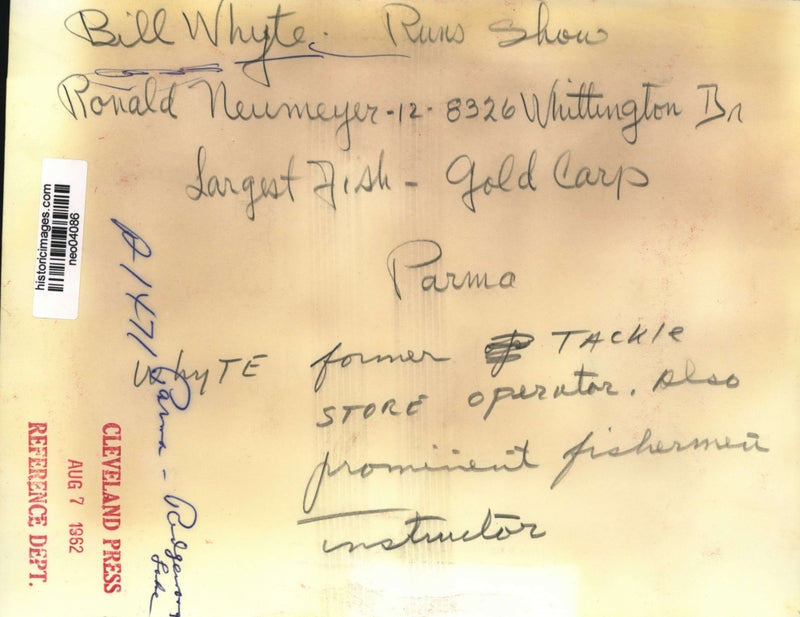 Bill Whyte. Runs Show
Ronald Neumeyer-12-8326 Whittington Dr
Largest Fish - Gold Carp
Parma
Whyte former TACKle
STORE operator. Also
prominent fishermen
instructor
historicimages.com
neo04086
A1471
Parma -
Lake
CLEVELAND PRESS
AUG 7 1962
REFERENCE DEPT.